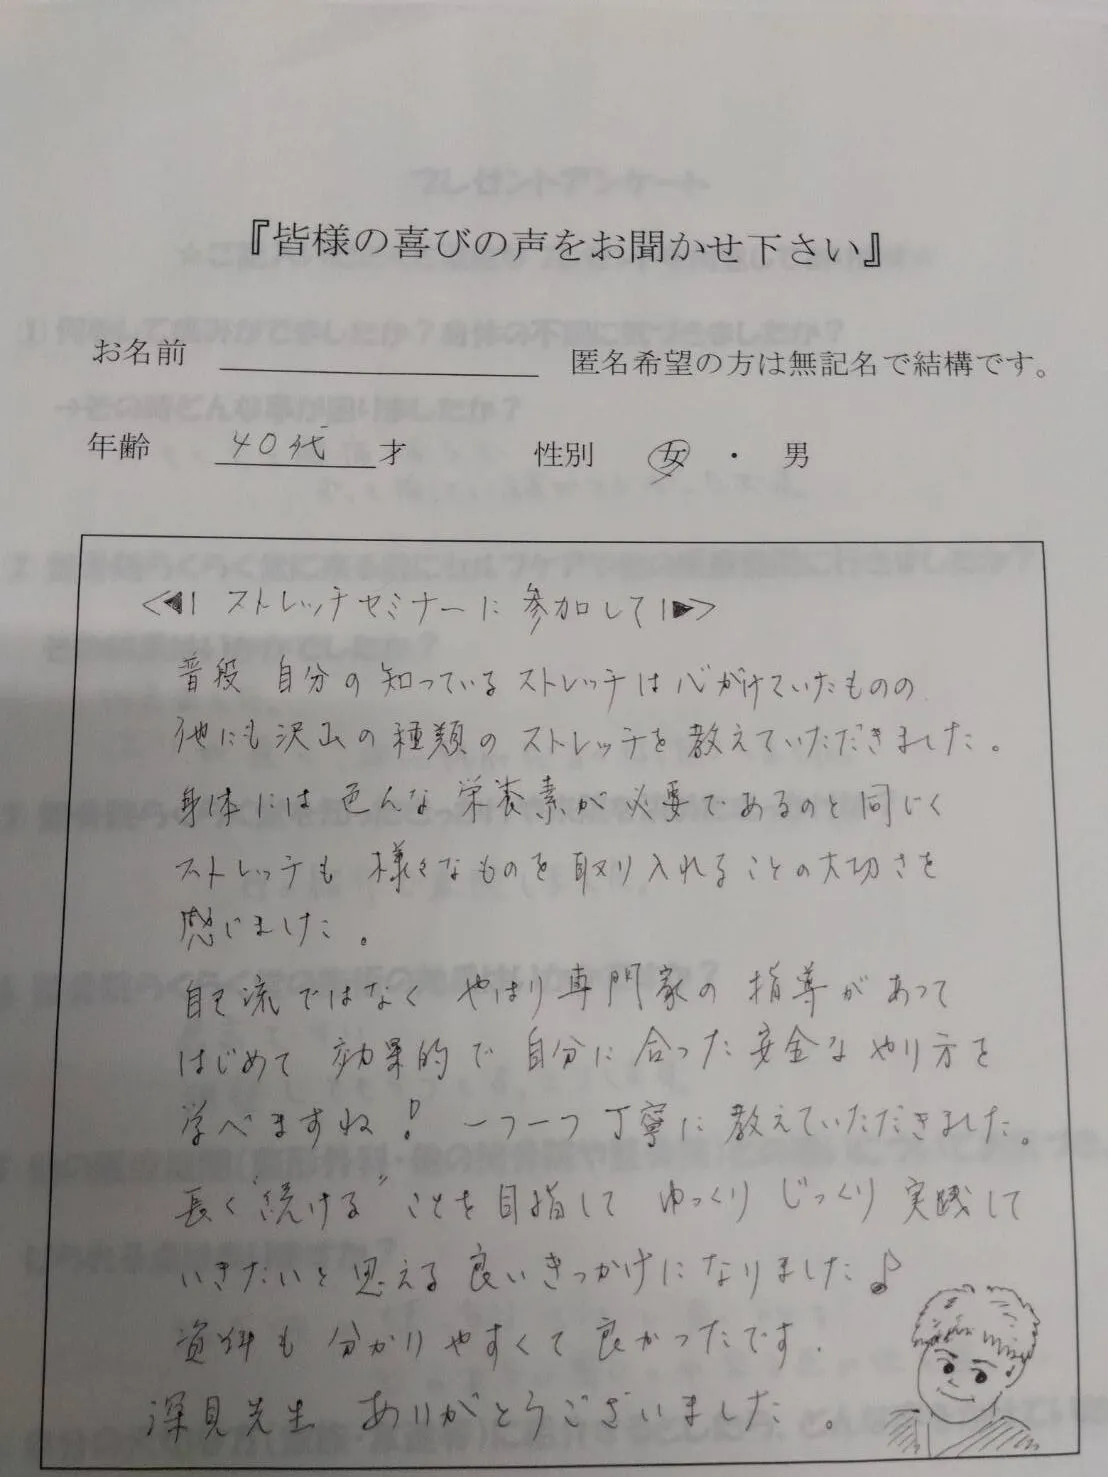 『皆様の喜びの声をお聞かせ下さい』
お名前 匿名希望の方は無記名で結構です。
年齢 40代 才 性別 女 ・ 男
<◀| ストレッチセミナーに 参加して |▶>
普段 自分の知っているストレッチは心がけていたものの
他にも沢山の種類のストレッチを教えていただきました。
身体には色んな栄養素が必要であるのと同じく
ストレッチも様々なものを取り入れることの大切さを
感じました。
自己流ではなく やはり専門家の指導があって
はじめて効果的で自分に合った安全なやり方を
学べますね! 一つ一つ丁寧に教えていただきました。
長く"続ける"ことを目指して ゆっくり じっくり 実践して
いきたいと思える良いきっかけになりました♪
資料も分かりやすくて良かったです.
深見先生 ありがとうございました。